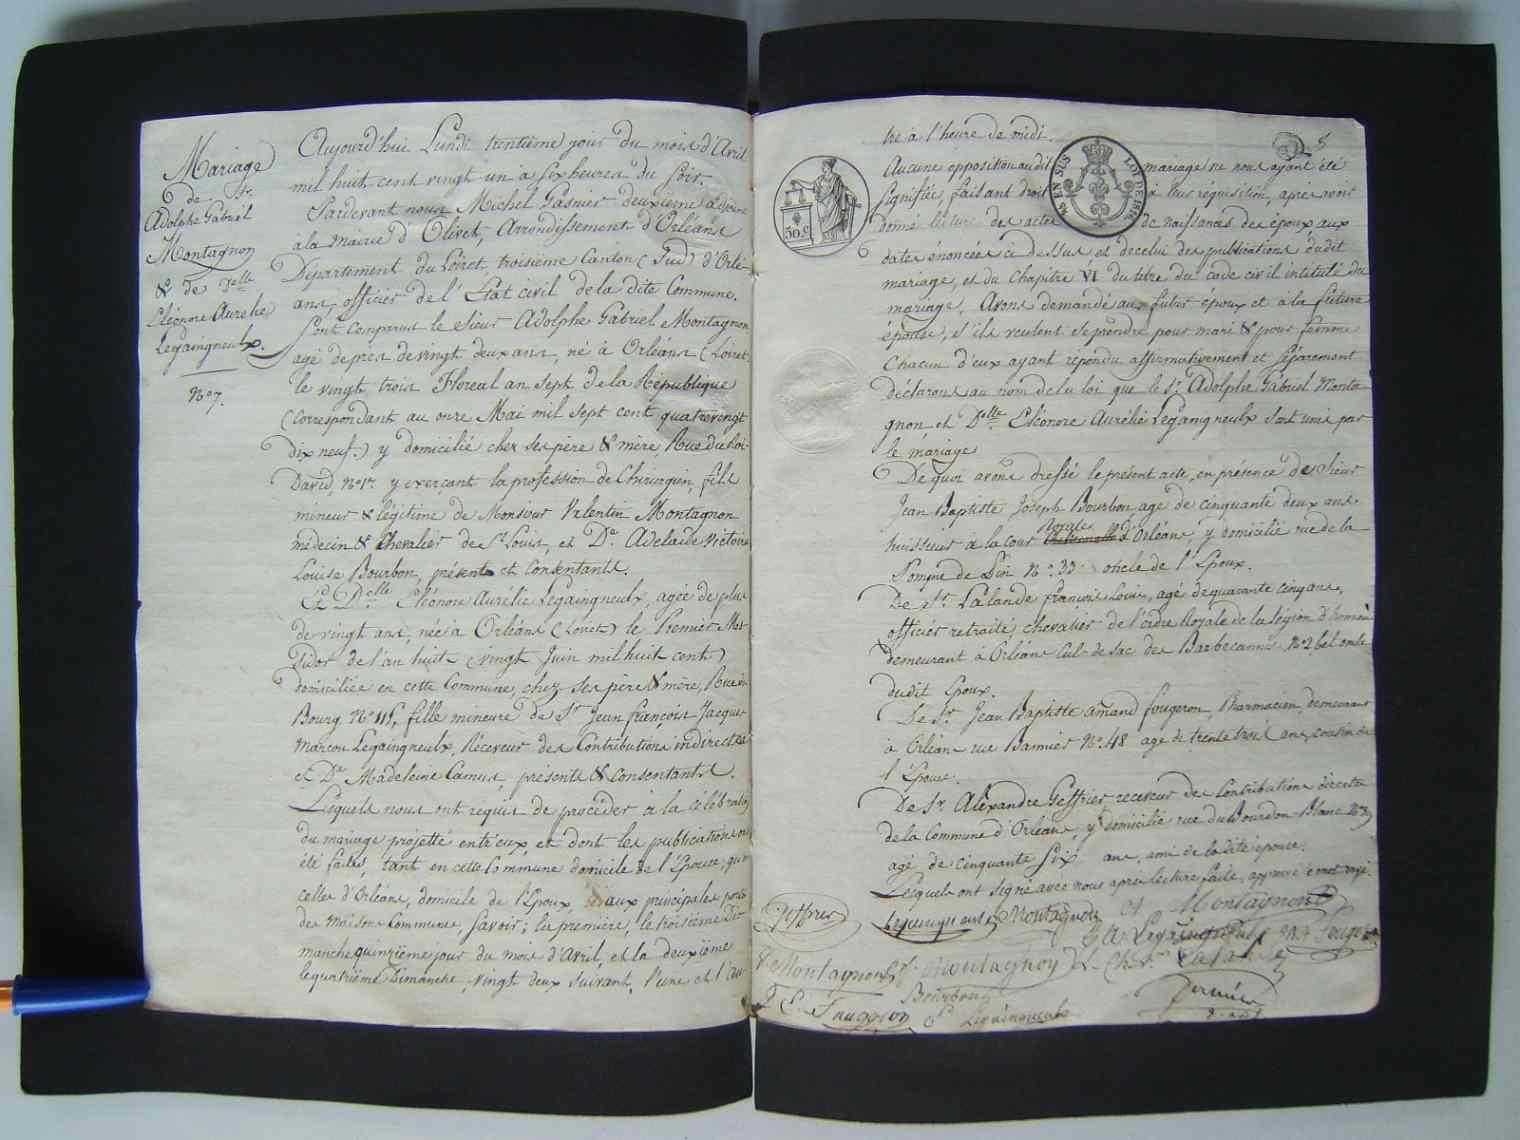 Mariage
de Sr.
Adolphe Gabriel
Montagnon
& de Delle
Eléonore Aurélie
Legaingneulx.
No 7.
Aujourd'hui Lundi trentième jour du mois d'Avril
mil huit cent vingt un à six heures du soir.
Pardevant nous Michel Gasnier deuxième adjoint
à la mairie d'Olivet, Arrondissement d'Orléans
Département du Loiret, troisième Canton (Sud) d'Orlé-
ans, officier de l'Etat civil de la dite Commune.
Sont comparus le Sieur Adolphe Gabriel Montagnon
agé de près de vingt deux ans, né à Orléans (Loiret)
le vingt trois Floreal an sept de la République
(correspondant au onze Mai mil sept cent quatrevingt
dix neuf.) y domicilié chez ses père & mère Rue du Roi-
David, No 1er. y exerçant la profession de Chirurgien, fils
mineur & légitime de Monsieur Valentin Montagnon
médecin & Chevalier de St Louis, et De. Adelaide Victoire
Louise Bourbon, présents et consentants.
Et Delle Eléonore Aurélie Legaingneulx, agée de plus
de vingt ans, née à Orléans (Loiret) le Premier Mes
sidor de l'an huit (vingt Juin mil huit cent)
domiciliée en cette Commune, chez ses père & mère, Rue du
Bourg No 115, fille mineure de Sr Jean françois Jacques
Marcou Legaingneulx, Receveur des Contributions indirectes
et De Madeleine Camus, présents & consentants.
Lesquels nous ont requis de procéder à la célébration
du mariage projetté entr'eux, et dont les publications ont
été faites, tant en cette Commune domicile de l'Epouse, qu'en
celles d'Orléans, domicile de l'Epoux, aux principales portes
des maisons Communes, savoir; la première, le troisième Di-
manche quinzième jour du mois d'Avril, et la deuxième
le quatrième Dimanche, vingt deux suivant, l'une et l'au-
5
tre à l'heure de midi.
Aucune opposition au dit mariage ne nous ayant été
signifiée, faisant droit à leur réquisition, après avoir
donné lecture des actes de naissances des époux aux
dates énoncées ci dessus, et de celui des publications dudit
mariage, et du Chapitre VI du titre du code civil intitulé du
mariage, Avons demandé au futur époux et à la future
épouse, s'ils veulent se prendre pour mari & pour femme
Chacun d'eux ayant répondu affirmativement et séparément
déclarons au nom de la loi que le Sr. Adolphe Gabriel Monta-
gnon, et Delle. Eléonore Aurélie Legaingneulx sont unis par
le mariage
De quoi avons dressé le présent acte, en présence de Sieur
Jean Baptiste Joseph Bourbon agé de cinquante deux ans.
huissier à la cour royale d'Orléans, y domicilié rue de la
Pomme de Pin No. 33. oncle de l'Epoux.
De Sr. Lalande françois Louis, agé de quarante cinq ans,
officier retraité, chevalier de l'ordre Royale de la légion d'honneur
demeurant à Orléans Cul-de sac des Barbecannes No 2 bel oncle
dudit Epoux.
De Sr. Jean Baptiste amand fougeron, Pharmacien, demeurant
à Orléans rue Bannier No. 48 agé de trente trois ans, cousin de
l'Epouse.
De Sr. Alexandre Geffrier receveur des Contributions directes
de la Commune d'Orléans, y domicilié rue du Bourdon-Blanc No 3
agé de cinquante six ans, ami de la dite épouse.
Lesquels ont signé avec nous après lecture faite, approuvé un mot rayé.
50c
LOI DE 1816
EN SUS
Geffrier
Legaingneulx
Montagnon
A Montagnon
E A Legaingneulx
Montagnon
Montagnon
L. Cher. Lalande
Bourbon
Fougeron
Legaingneulx